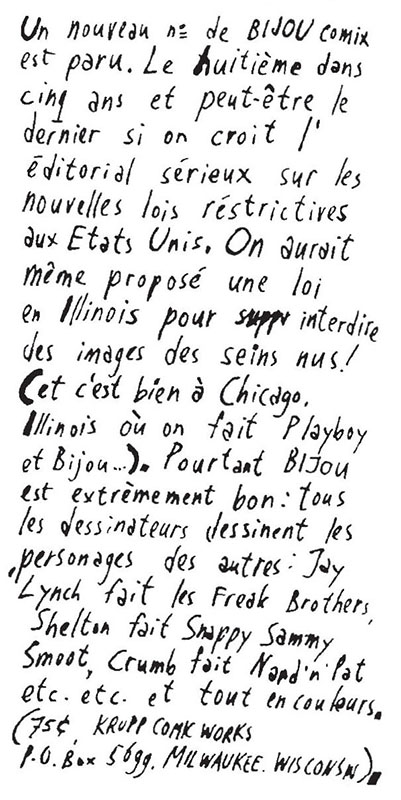 Un nouveau nº de BIJOU comix
est paru. Le huitième dans
cinq ans et peut-être le
dernier si on croit l'
éditorial sérieux sur les
nouvelles lois réstrictives
aux Etats Unis. On aurait
même proposé une loi
en Illinois pour interdire
des images des seins nus!
(et c'est bien à Chicago,
Illinois où on fait Playboy
et Bijou...). Pourtant BIJOU
est extrèmement bon: tous
les dessinateurs dessinent les
personages des autres: Jay
Lynch fait les Freak Brothers,
Shelton fait Snappy Sammy
Smoot, Crumb fait Nard 'n' Pat
etc. etc. et tout en couleurs.
(75¢, KRUPP COMIC WORKS
P.O. Box 5699. MILWAUKEE. WISCONSIN).